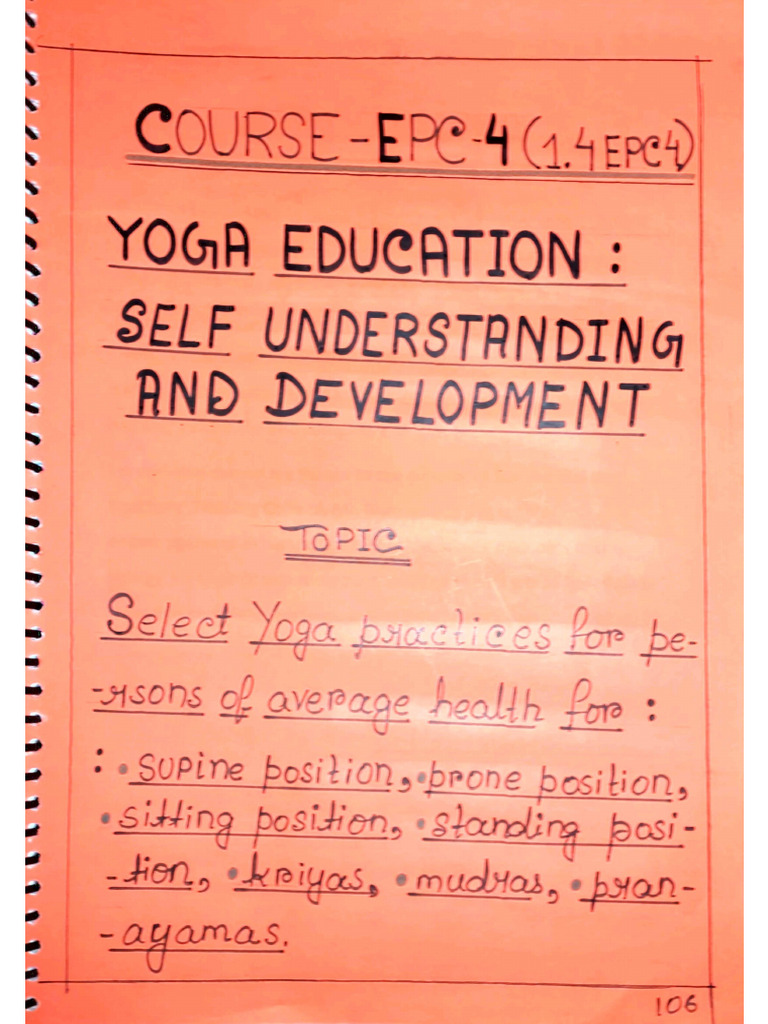 COURSE-EPC-4 (1.4 EPC4)
YOGA EDUCATION :
SELF UNDERSTANDING
AND DEVELOPMENT
TOPIC
Select Yoga practices for pe-
-rsons of average health for :
: • supine position, • prone position,
• sitting position, • standing posi-
-tion, • kriyas, • mudras, • pran-
-ayamas.
106